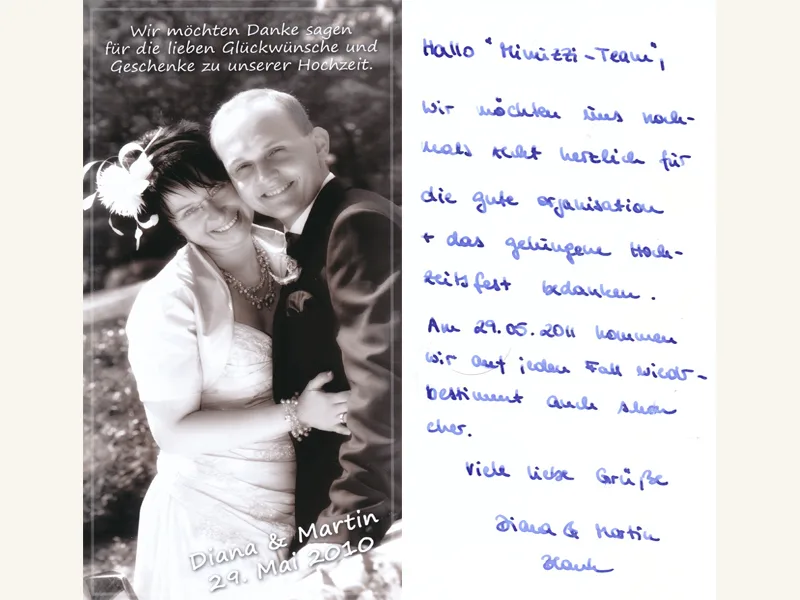 Wir möchten Danke sagen
für die lieben Glückwünsche und
Geschenke zu unserer Hochzeit.
Diana & Martin
29. Mai 2010
Hallo "Minuzzi-Team",
wir möchten uns noch-
mals recht herzlich für
die gute organisation
+ das gelungene Hoch-
zeitsfest bedanken.
Am 29.05.2011 kommen
wir auf jeden Fall wieder-
bestimmt auch schon
eher.
Viele liebe Grüße
Diana & Martin